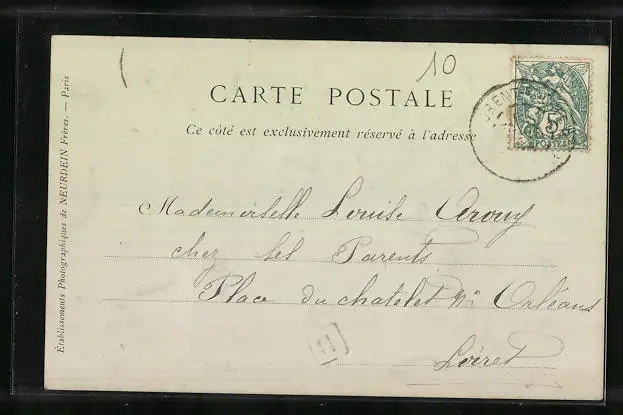 10
CARTE POSTALE
Ce côté est exclusivement réservé à l'adresse
5
POSTES
Mademoiselle Louise
chez ses Parents
Place du chatelet Orléans
Loiret
Établissements Photographiques de NEURDEIN Frères. — Paris